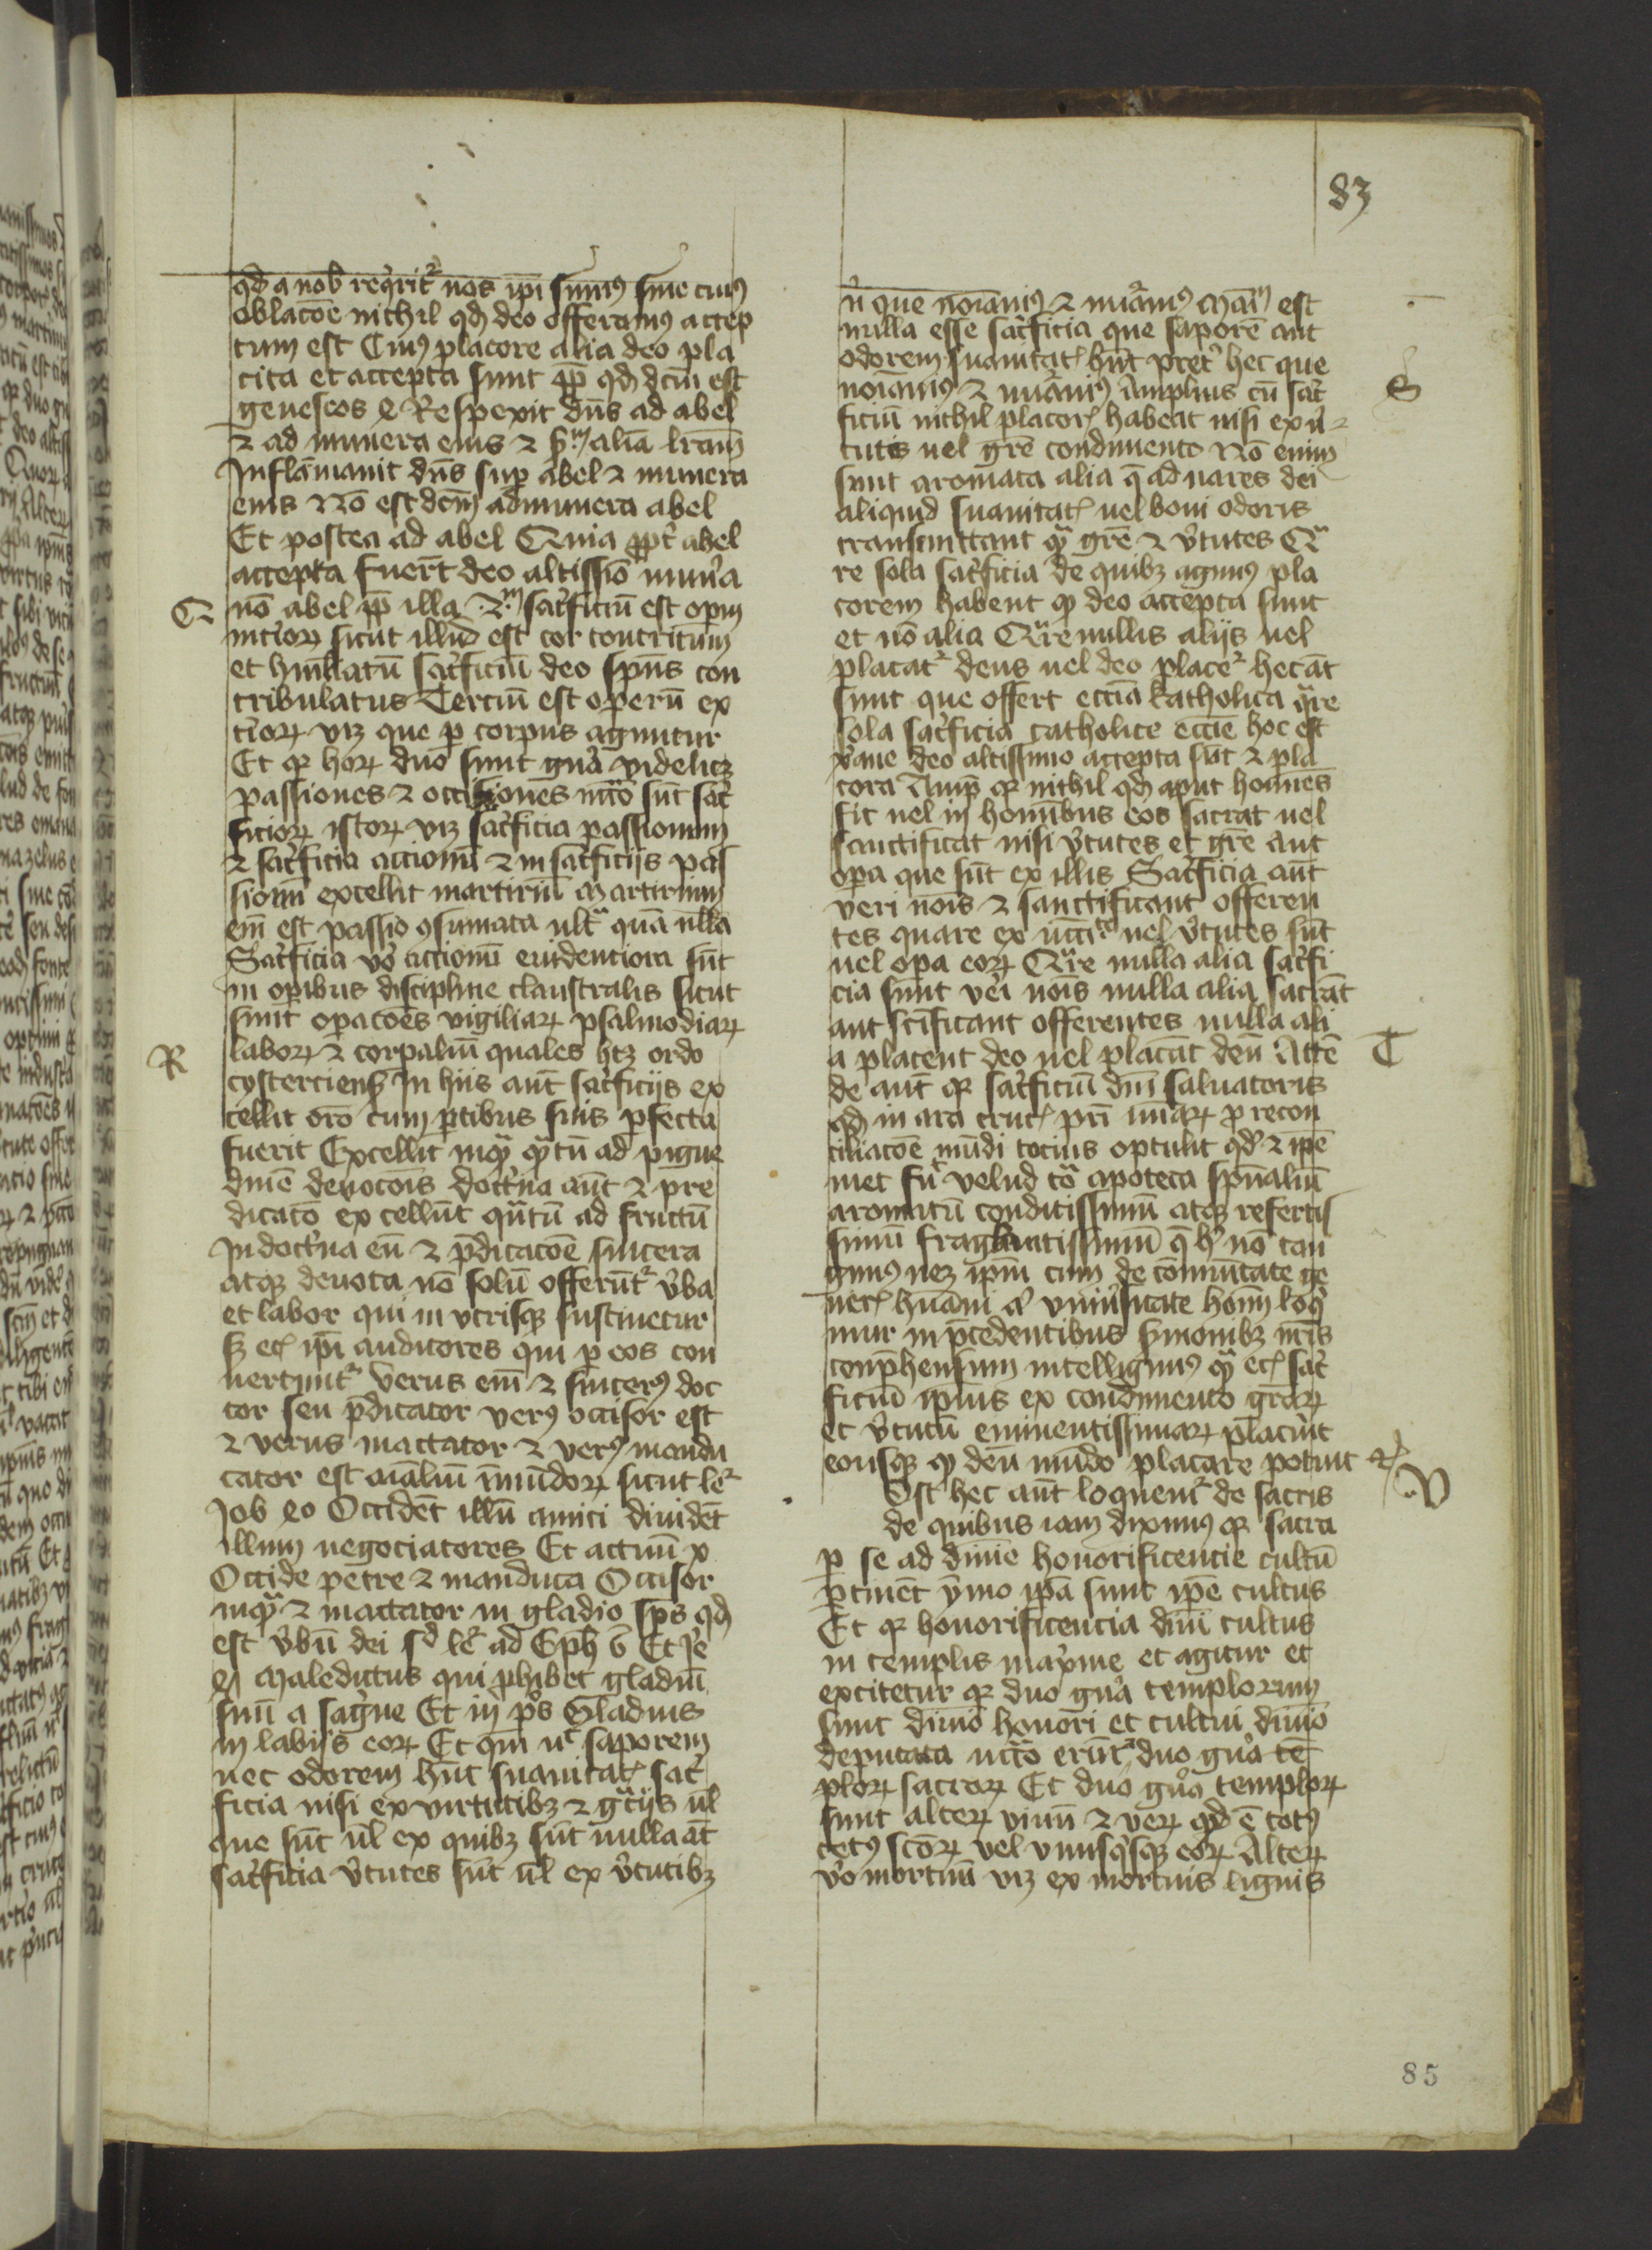 83
qd a nob requirit᷑ nos ip̄i sumꝰ sine cuiꝰ
oblacōe nichil qd deo offeramus accep
tum est Cuiꝰ placore alia deo pla
cita et accepta sunt ꝓp̄ qd dc̄m est
geneseos 4 Respexit dn̄s ad abel
⁊ ad munera eius ⁊ sm̄ aliā lr̄am
Inflāmauit dn̄s sup abel ⁊ munera
eius Nō est dc̄m ad munera abel
Et postea ad abel Quia ꝓpt̄ abel
accepta fuer̄t deo altissīo mun̄a
Q
nō abel ꝓp̄ illa 2m sac̄ficiū est oꝑum
int̄ioꝝ sicut illud est cor contritum
et humiliatū sac̄ficiū deo sp̄us con
tribulatus Tercium est operū ex
t̄ioꝝ vꝫ que ꝑ corpus aguntur
Et qꝛ hoꝝ duo sunt gn̄a videlicꝫ
passiones ⁊ occisiones nc̄cō sūt sac̄
ficioꝝ istoꝝ vꝫ sac̄ficia passionum
⁊ sac̄ficia accionū ⁊ in sac̄ficijs pas
sionū excellit martiriū Martirium
em̄ est passio ꝯsumata ult̄ quā nulla
Sac̄ficia vō accionū euidentiora sūt
in oꝑibus discipline claustralis sicut
sunt oꝑacōes vigiliaꝝ psalmodiaꝝ
R
laboꝝ ⁊ corꝑaliū quales hꝫ ordo
cysterciens̄ In hiis aūt sac̄ficijs ex
cellit orō cum ꝑtibus suis ꝑfecta
fuerit Excellit inqͣ qͣtū ad pigue
dinē deuocōis doct̄na aūt ⁊ pre
dicatō excellūt qͣtū ad fructū
In doct̄na em̄ ⁊ p̄dicacōe sincera
atqꝫ deuota nō solū offerūt᷑ v̄ba
et labor qui in vtrisqꝫ sustinetur
sꝫ ec̄ ip̄i auditores qui ꝑ eos con
uertunt᷑ Verus em̄ ⁊ sincerꝰ doc
tor seu p̄dicator verꝰ occisor est
⁊ verus mactator ⁊ verꝰ mandu
cator est aīaliū īmūdoꝝ sicut le᷑
Job 40 Occidēt illū amici diuidēt
illum negociatores Et actuū x
Occide petre ⁊ manduca Occisor
inqͣ ⁊ mactator in gladio sp̄s qd
est v̄bū dei sd le᷑ ad Eph 6 Et Je
Maledictus qui ꝓhibet gladiū
suū a sāgne Et in ps̄ Gladius
in labijs eoꝝ Et qm̄ nc̄ saporem
nec odorem hn̄t suauitat sac̄
ficia nisi ex virtutibꝫ ⁊ gr̄ijs ul̄
que sūt ul̄ ex quibꝫ sūt nulla āt
sac̄ficia v̄tutes sūt ul̄ ex v̄tutibꝫ
que noīamus ⁊ est
nulla esse sac̄ficia que saporē aut
odorem suauitat hn̄t pret̄ hec que
S
noīamus ⁊ Amplius cū sac̄
ficiū nichil placor habeat nisi ex v̄
tutis uel gr̄e condimento Nō enim
sunt aromata alia q̄ ad nares dei
aliquid suauitat uel boni odoris
transmittant qͣ gr̄e ⁊ v̄tutes Qͣ
re sola sac̄ficia de quibꝫ agimꝰ pla
corem habent qꝛ deo accepta sunt
et nō alia Qͣre nullis alijs uel
placat᷑ deus uel deo place᷑ hec āt
sunt que offert ecc̄ia katholica qͣre
sola sac̄ficia catholice ecc̄ie hoc est
xp̄iane deo altissimo accepta sūt ⁊ pla
cora Amp̄ qꝛ nichil qd aput hom̄es
fit uel in hominibus eos sacrat uel
sanctificat nisi v̄tutes et gr̄e aut
oꝑa que sūt ex illis Sac̄ficia aūt
veri nōis ⁊ sanctificant offeren
tes quare ex nc̄citͣte uel v̄tutes sūt
uel oꝑa eoꝝ Qͣre nulla alia sac̄fi
cia sunt veri nōis nulla alia sacrāt
aut sc̄ificant offerentes nulla ali
T
a placent deo uel placāt deū Attē
de aūt qꝛ sac̄ficiū dn̄i saluatoris
qd in ara cruc pro recon
ciliacōe mūdi tocius optulit qd ⁊ ip̄e
met fuit velud tota apoteca sp̄ualiū
aromatū conditissimū atqꝫ refertis
simū fraglantissimū nō tan
gimꝰ neqꝫ ip̄m cum de cōmunitate ge
neris hūani vniūsitate hom̄ loqͥ
mur in p̄cedentibus s̄monibꝫ nr̄is
conp̄hensum intelligimꝰ qͣ ec̄ sac̄
ficiū ip̄ius ex condimento gr̄aꝝ
et v̄tutū eminentissimaꝝ placuit
eousqꝫ qꝛ deū mūdo placare potuit
V
Ost hec aūt loquem᷑ de sacris
de quibus iam diximꝰ qꝛ sacra
ꝑ se ad diuine honorificencie cultū
ꝑtinēt ȳmo ip̄a sunt ip̄e cultus
Et qꝛ honorificencia diuini cultus
in templis maxime et agitur et
excitetur qꝛ duo gn̄a templorum
sunt diuino honori et cultui diuino
deputata nc̄cō erūt duo gn̄a tē
ploꝝ sacroꝝ Et duo gn̄a temploꝝ
sunt alteꝝ viuū ⁊ verū qd ē totꝰ
cetꝰ sc̄oꝝ vel vnusqͥsqꝫ eoꝝ Alteꝝ
v̄o mortuū vꝫ ex mortuis lignis
85